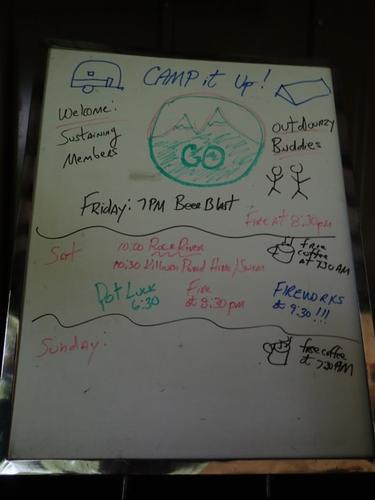 CAMP it Up!
Welcome:
Sustaining
Members
GO
OutDoorzy
Buddies
Friday: 7PM Beer Blast
Fire at 8:30pm
Sat
10:00 Rock River
10:30 Pond Hike/Swim
free
coffee
at 7:30AM
Pot Luck
6:30
Fire
at 8:30pm
FIREWORKS
at 9:30!!!
Sunday:
free coffee
at 7:30AM